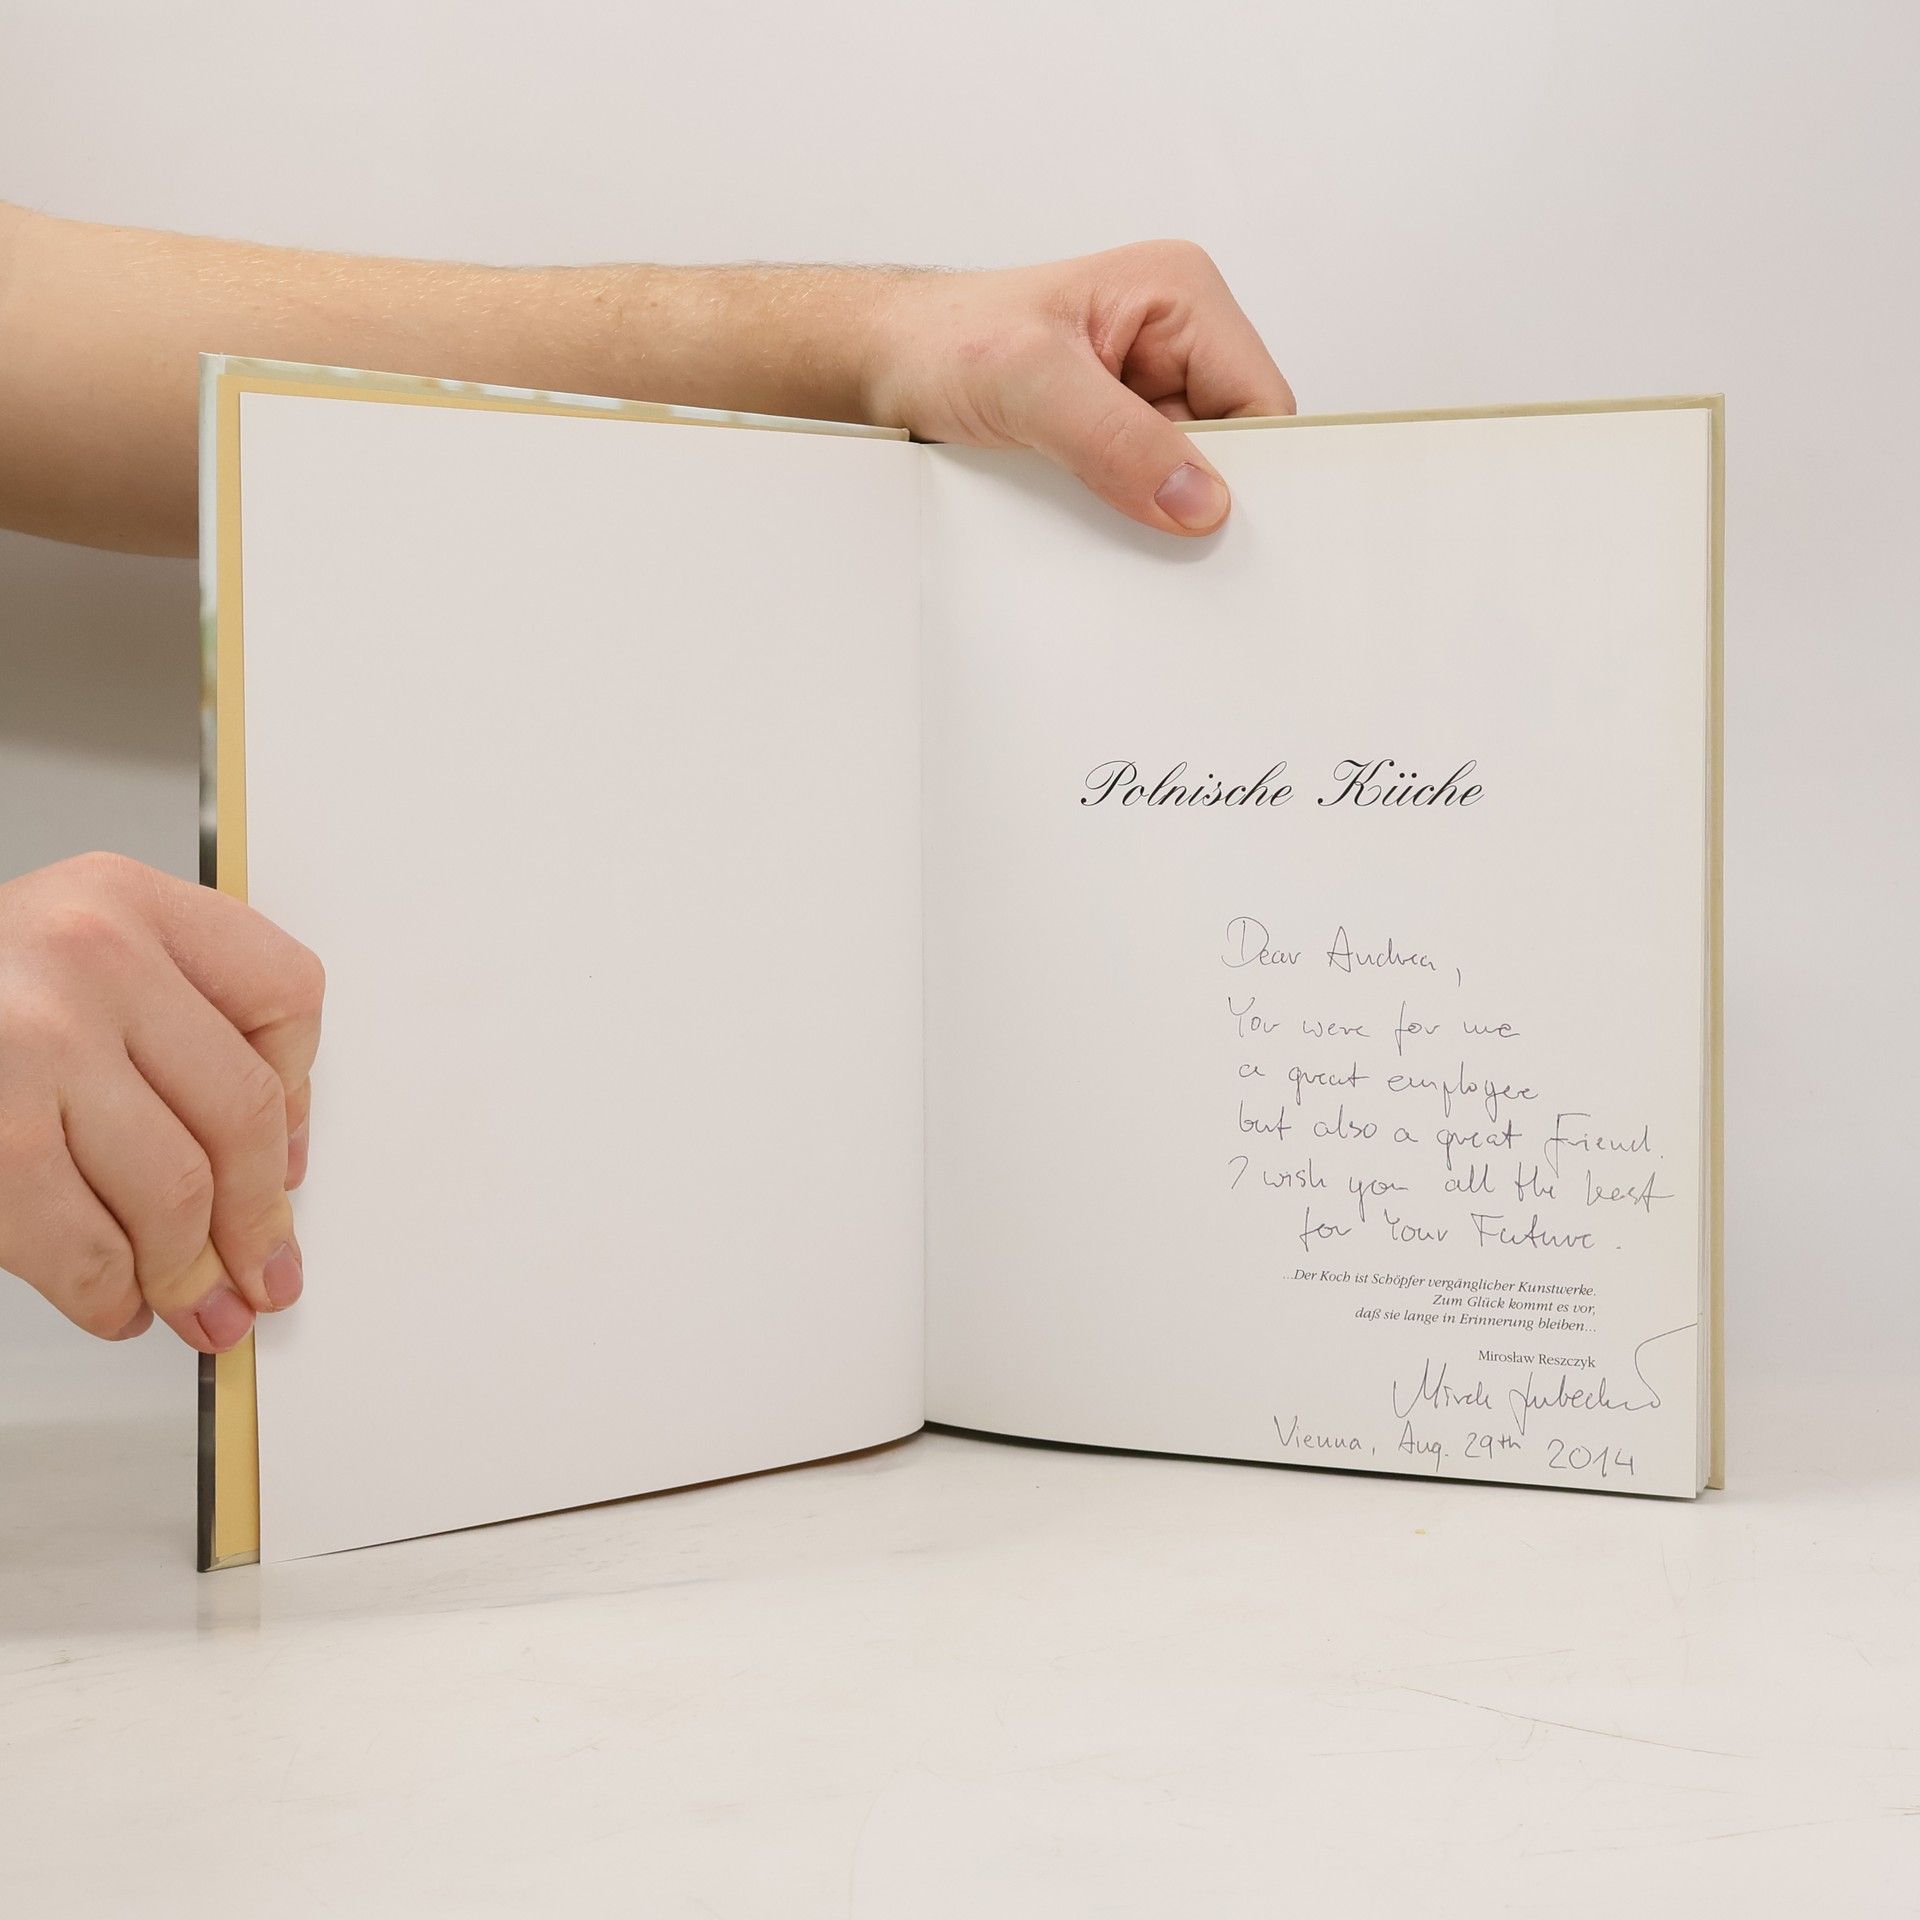 Polnische Küche
Dear Andrea,
You were for me
a great employee
but also a great Friend.
I wish you all the best
for Your Future.
...Der Koch ist Schöpfer vergänglicher Kunstwerke.
Zum Glück kommt es vor,
daß sie lange in Erinnerung bleiben...
Mirosław Reszczyk
Mirek
Vienna, Aug. 29th 2014